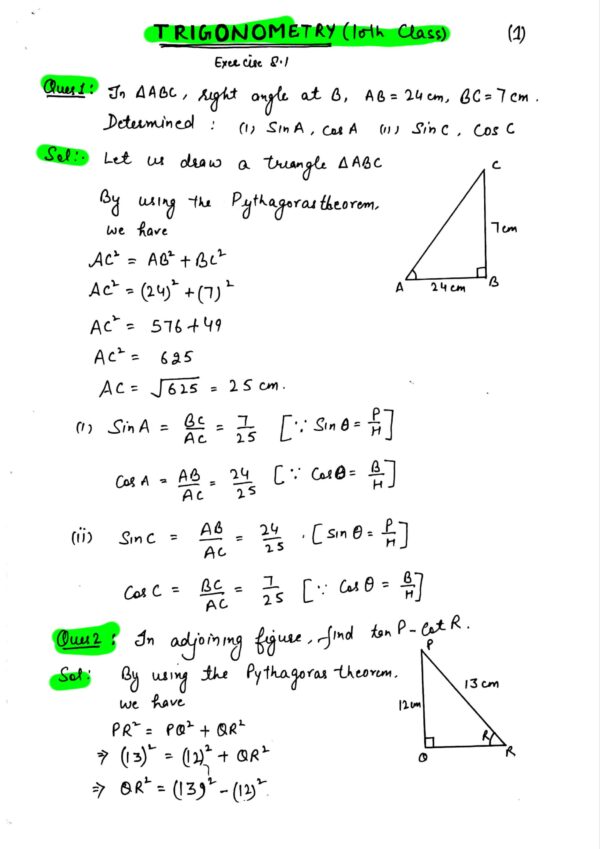 TRIGONOMETRY (10th Class) (1)
Exercise 8.1
Ques 1: In ΔABC, right angle at B, AB = 24 cm, BC = 7 cm.
Determined : (i) Sin A, Cos A (ii) Sin C, Cos C
Sol:- Let us draw a triangle ΔABC
By using the Pythagoras theorem,
we have
AC² = AB² + BC²
AC² = (24)² + (7)²
AC² = 576 + 49
AC² = 625
AC = √625 = 25 cm.
C
7 cm
A 24 cm B
(i) Sin A = BC/AC = 7/25 [∵ Sin θ = P/H]
Cos A = AB/AC = 24/25 [∵ Cos θ = B/H]
(ii) Sin C = AB/AC = 24/25 . [Sin θ = P/H]
Cos C = BC/AC = 7/25 [∵ Cos θ = B/H]
Ques 2 : In adjoining figure, find tan P - Cot R.
Sol: By using the Pythagoras theorem,
we have
PR² = PQ² + QR²
⇒ (13)² = (12)² + QR²
⇒ QR² = (13)² - (12)²
P
12 cm 13 cm
R
Q R